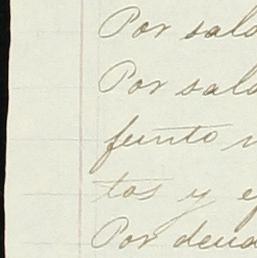 Por sald
Por sald
funto
tos y ef
Por deud